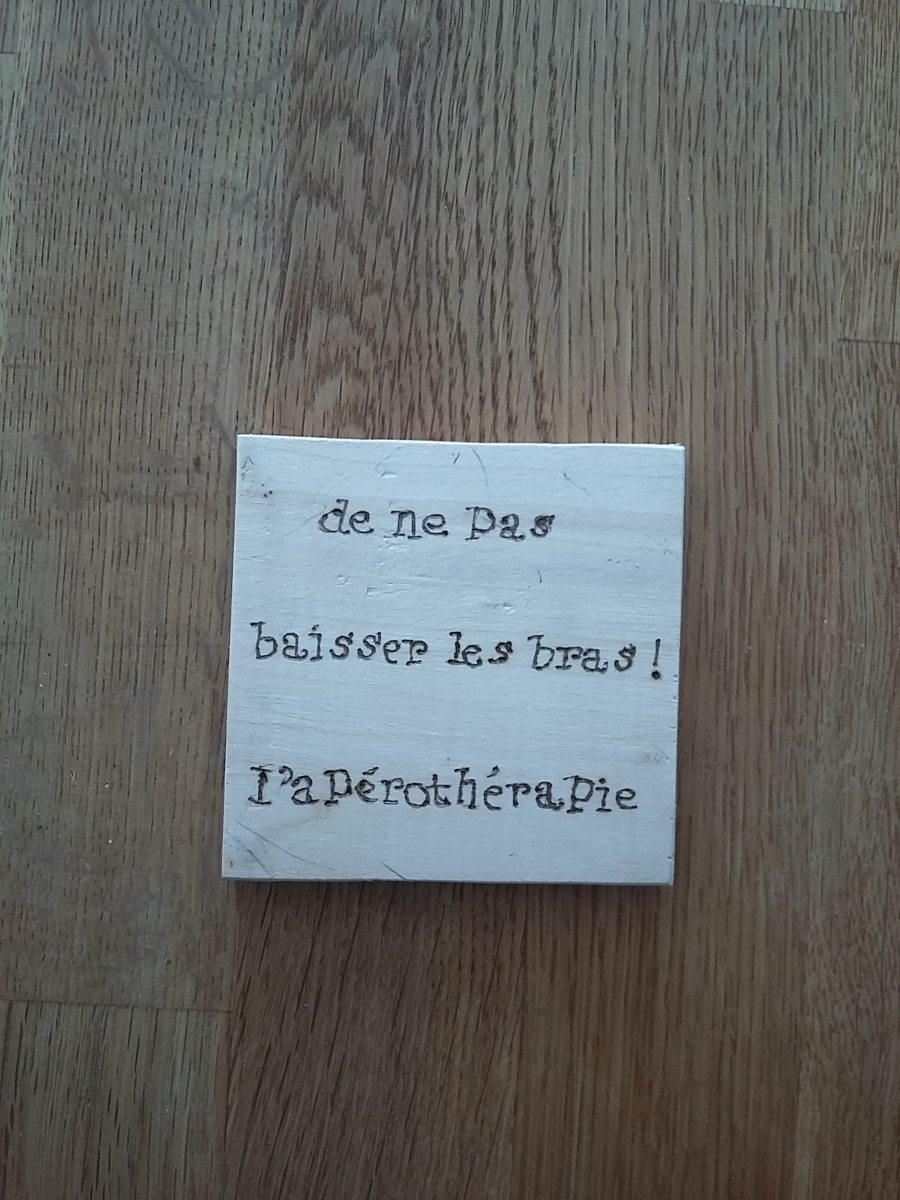 de ne pas
baisser les bras!
l'apérothérapie